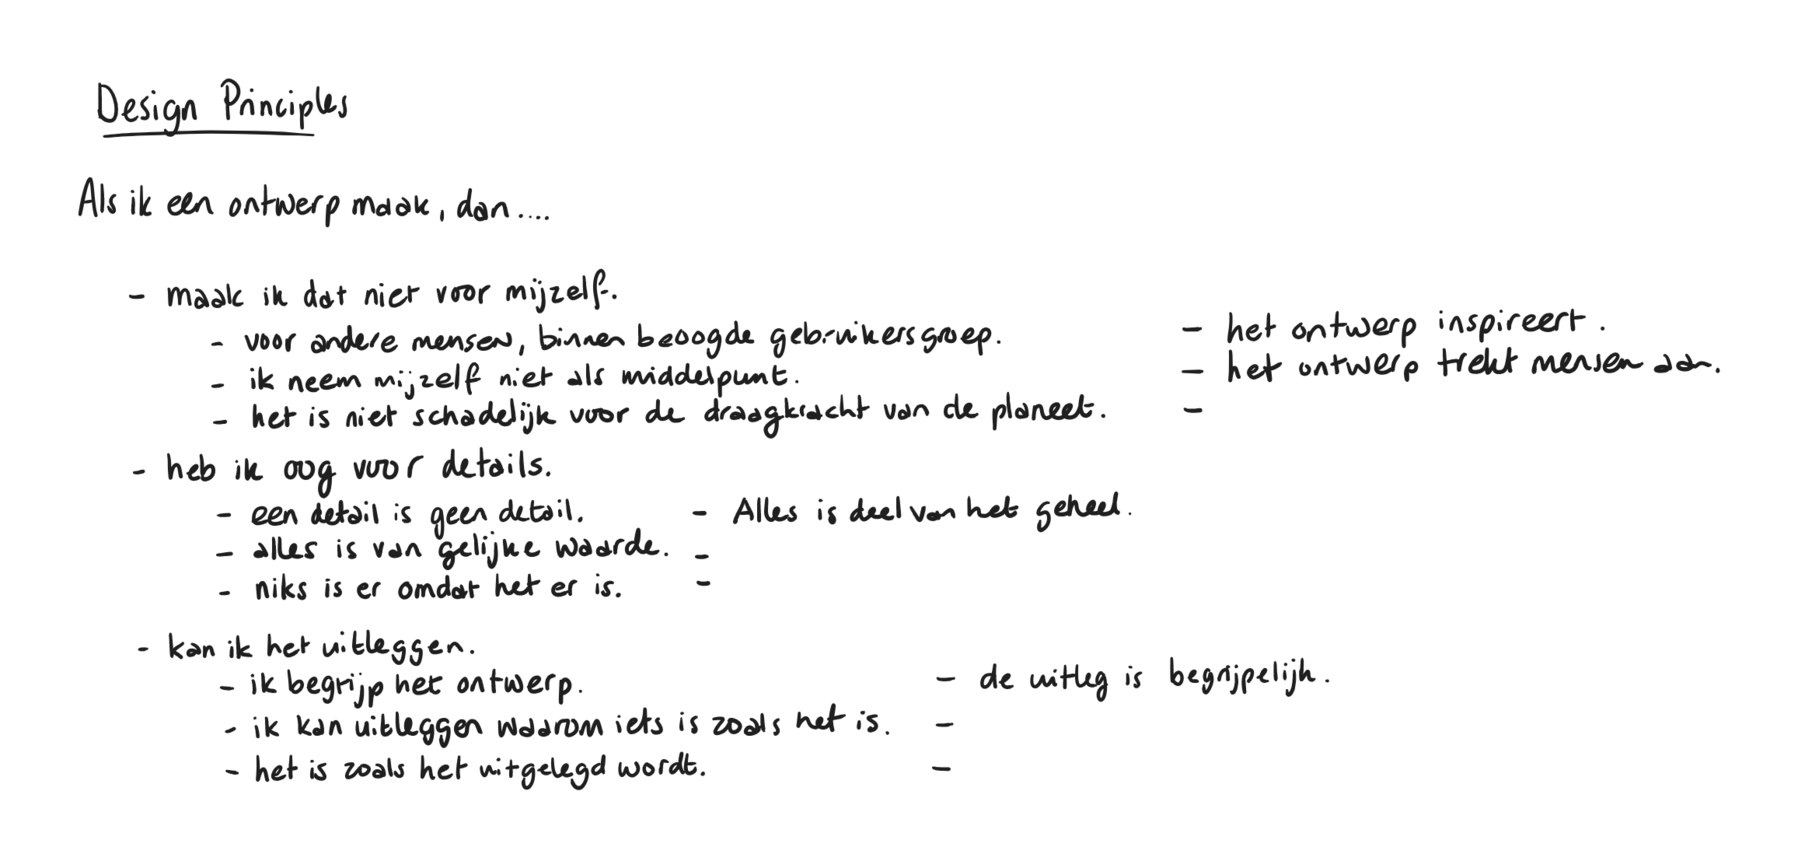 Design Principles
Als ik een ontwerp maak, dan....
- maak ik dat niet voor mijzelf.
- voor andere mensen, binnen beoogde gebruikersgroep.
- ik neem mijzelf niet als middelpunt.
- het is niet schadelijk voor de draagkracht van de planeet.
- het ontwerp inspireert.
- het ontwerp trekt mensen aan.
-
- heb ik oog voor details.
- een detail is geen detail.
- alles is van gelijke waarde.
- niks is er omdat het er is.
- Alles is deel van het geheel.
-
-
- kan ik het uitleggen.
- ik begrijp het ontwerp.
- ik kan uitleggen waarom iets is zoals het is.
- het is zoals het uitgelegd wordt.
- de uitleg is begrijpelijk.
-
-